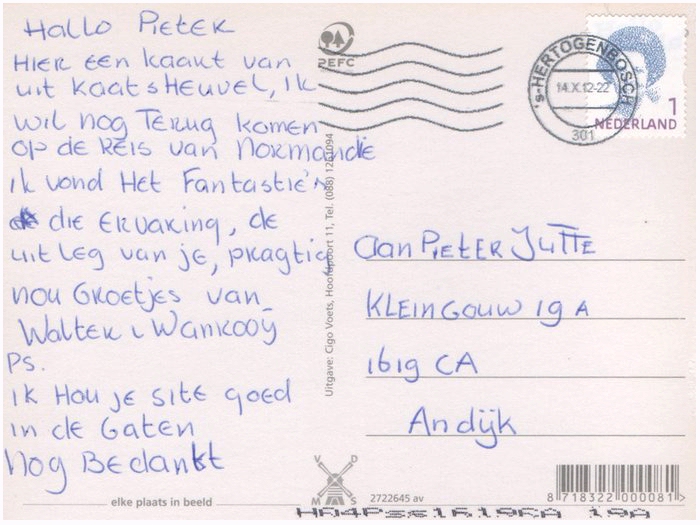 Hallo Pieter
Hier een kaart van
uit Kaatsheuvel, ik
wil nog terug komen
op de reis van Normandie
ik vond het Fantastie'n
die ervaring, de
uitleg van je, pragtig
nou Groetjes van
Walter v Wankooij
PS.
ik hou je site goed
in de Gaten
nog Bedankt
PEFC
's-HERTOGENBOSCH
14.X.12-22
301
1
NEDERLAND
Uitgave: Cigo Voets, Hoofdpoort 11, Tel. (088) 1261094
aan Pieter Jutte
Kleingouw 19 A
1619 CA
Andijk
elke plaats in beeld
V D
M S
2722645 av
8 718322 000081 >